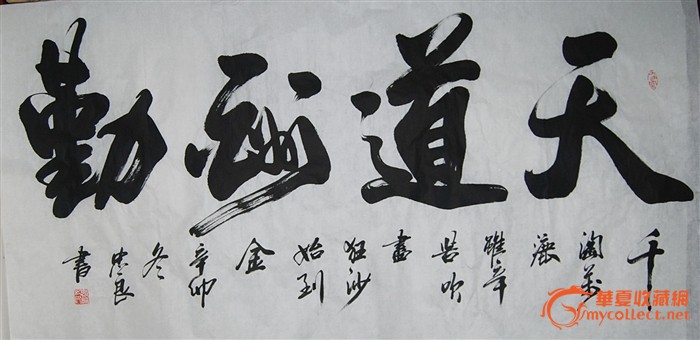 天道酬勤
千
淘萬
漉
雖辛
苦吹
盡
狂沙
始到
金
辛卯
冬
忠良
書
華夏收藏網
mycollect.net